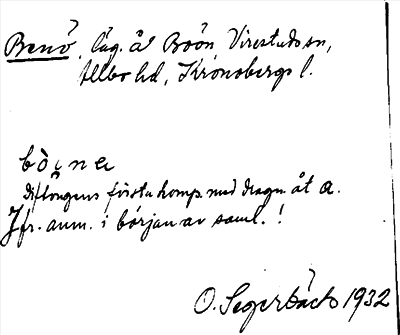 Benö, läg. å Böön Virestads sn,
Allbo hd, Kronobergs l.
bòi̯na
Diftongens första komp. med dragn. åt a.
Jfr. anm. i början av saml.!
O. Segerbäck 1932